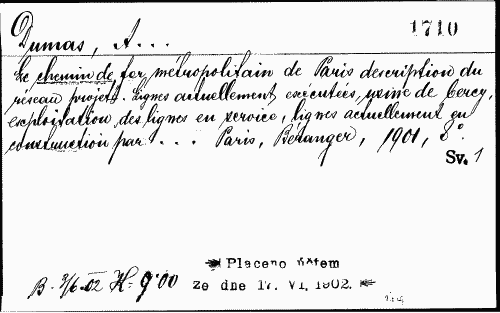 1710
Dumas, A...
Le chemin de fer métropolitain de Paris description du
réseau projeté. Lignes actuellement exécutées, usine de Bercy,
exploitation des lignes en service, lignes actuellement en
construction par . . . Paris, Béranger, 1901, 8°.
Sv. 1
Placeno
ze dne 17. VI. 1902.
B. 3/6 02 K. 9.00